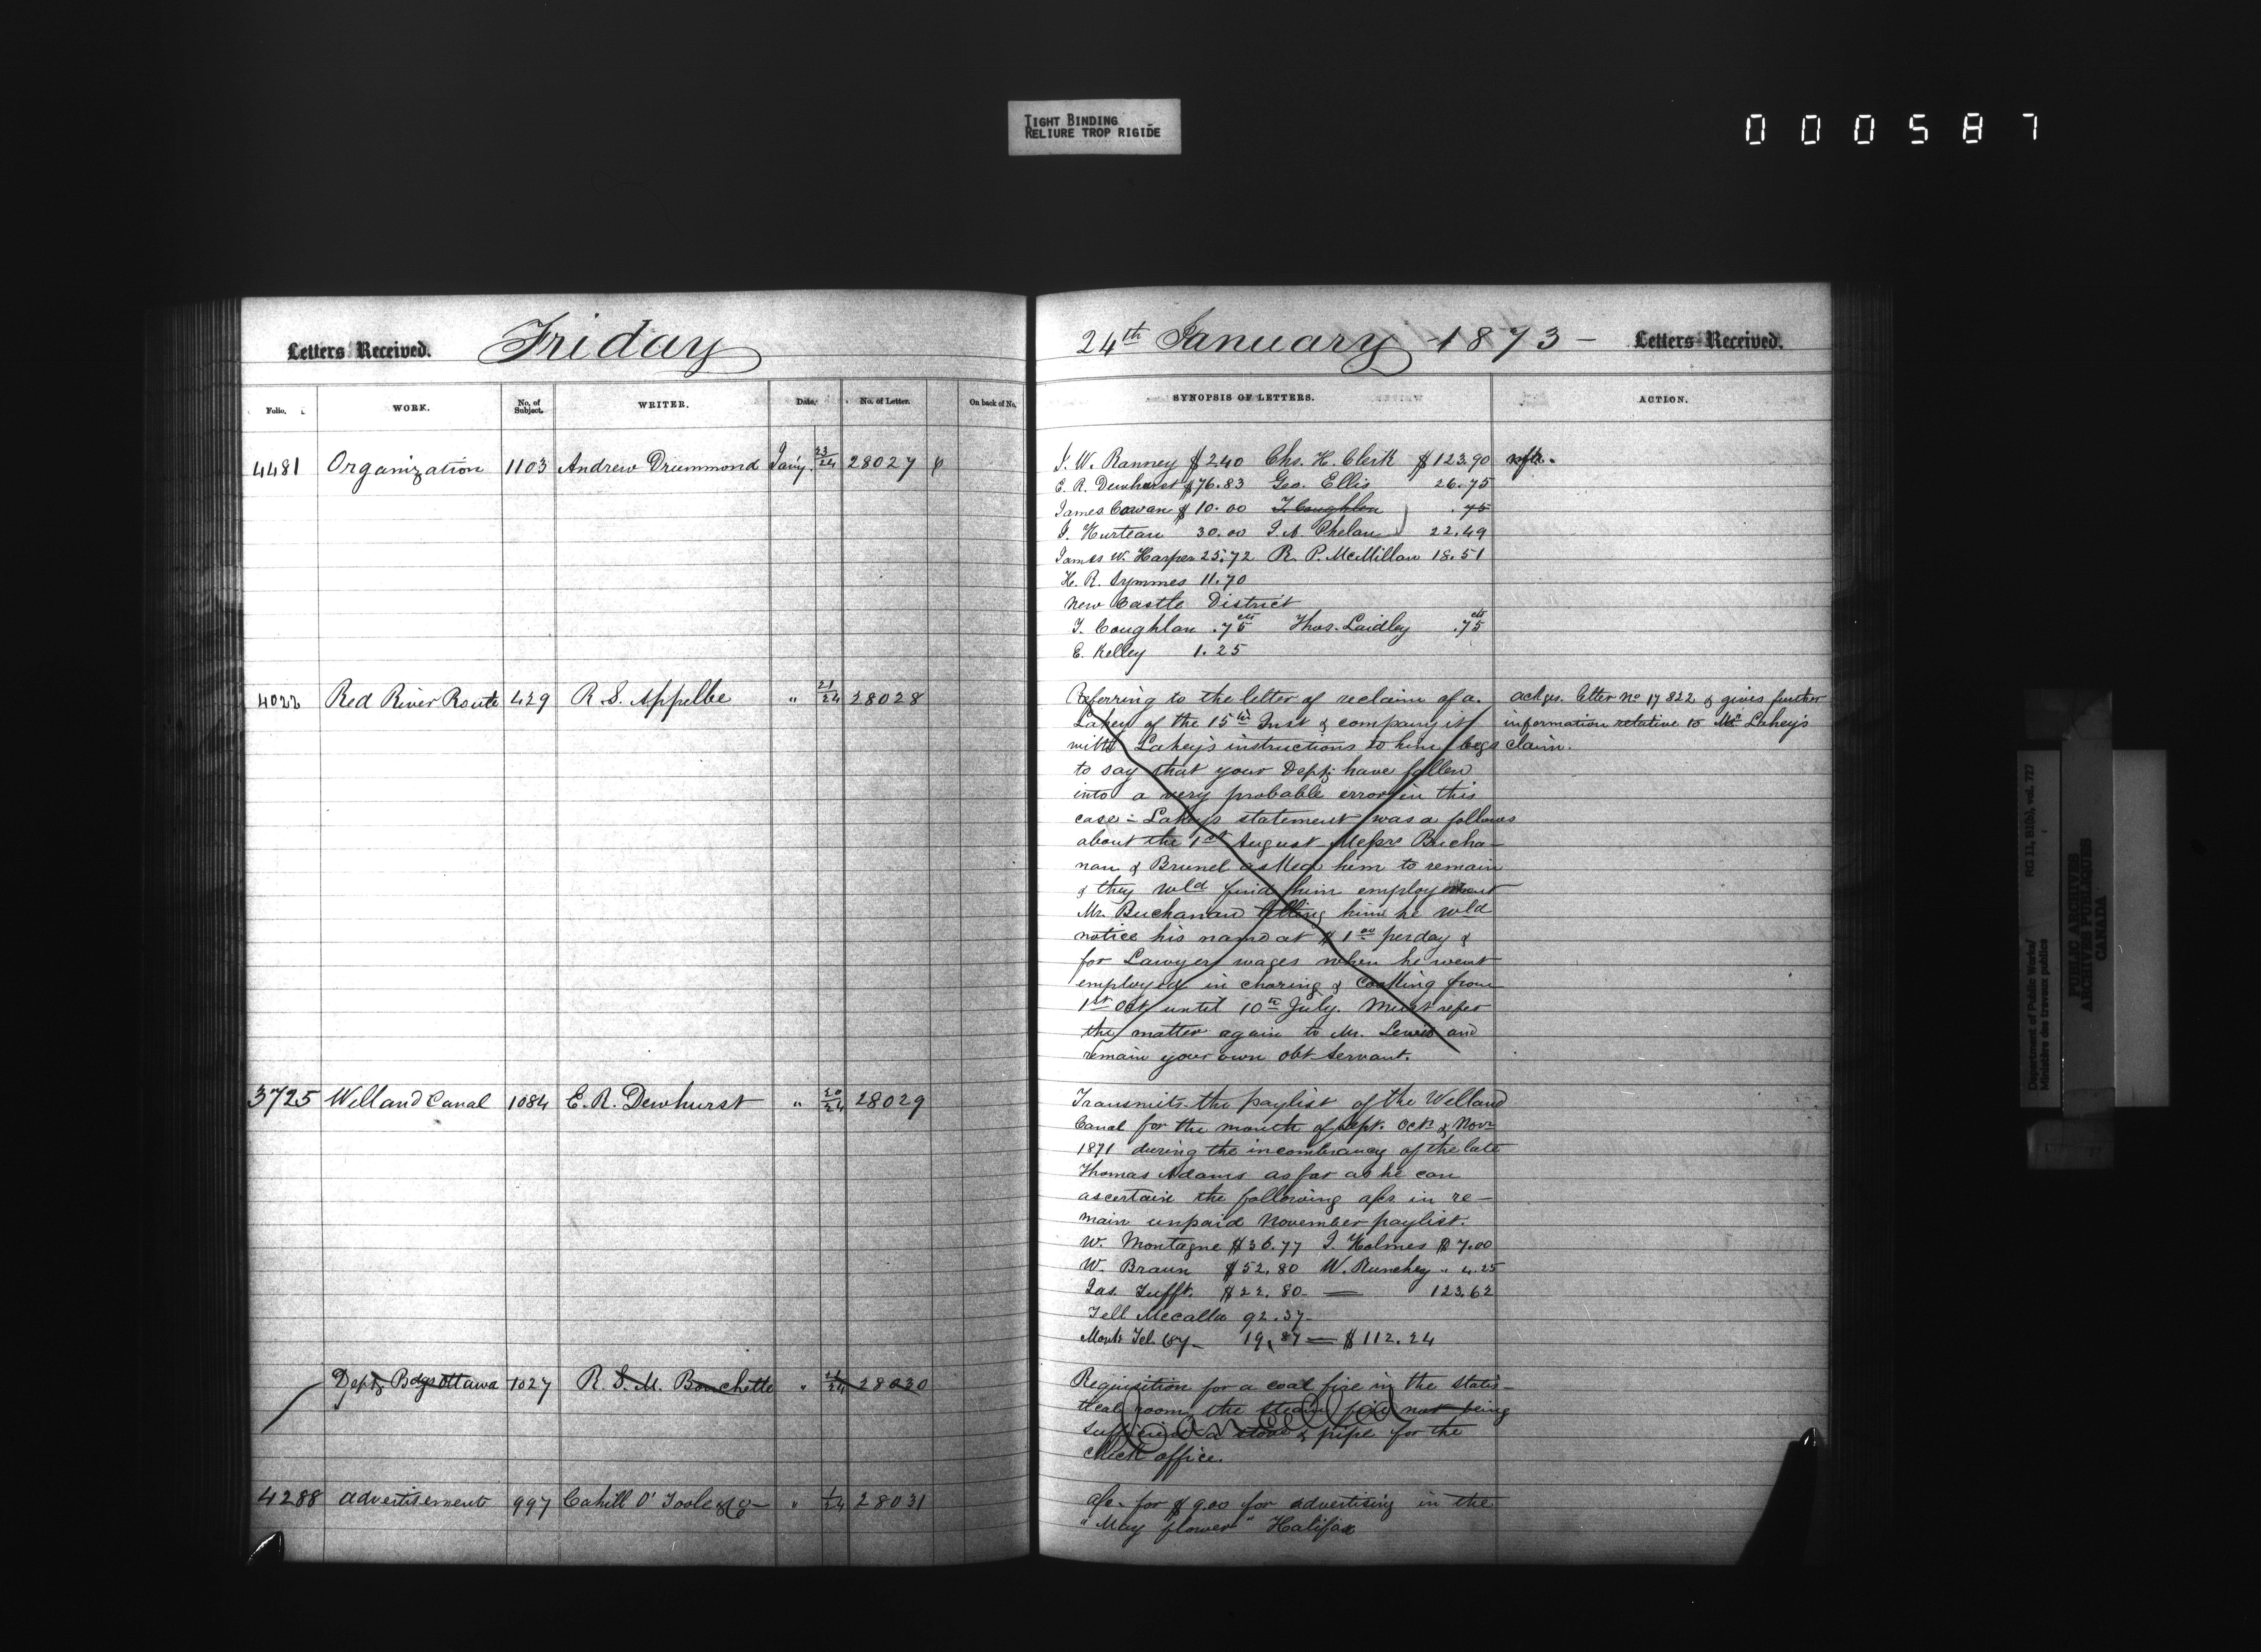 TIGHT BINDING
RELIURE TROP RIGIDE
000587
Letters Received. Friday
24th January 1873 – Letters Received.
Folio. WORK. No. of Subject. WRITER. Date. No. of Letter. On back of No.
SYNOPSIS OF LETTERS. ACTION.
4481 Organization 1103 Andrew Drummond Jan'y. 23/24 28027
J. W. Ranney $240 Chs. H. Clerk $123.90
E. R. Dewhurst $76.83 Geo. Ellis 26.75
James Cowan $10.00 T. Coughlan .75
J. Hurteau 30.00 J. A. Phelan 22.49
James W. Harper 25.72 R. P. McMillan 18.51
H. R. Symmes 11.70
New Castle District
T. Coughlan .75 cts Thos. Laidley .75 cts
E. Kelley 1.25
4022 Red River Route 429 R. S. Appelbe " 21/24 28028
Referring to the letter of reclaim of a.
Lahey of the 15th Inst & company it
with Lahey's instructions to him begs
to say that your Dept. have fallen
into a very probable error in this
case – Lahey's statement was a follows
about the 1st August Messrs Bucha–
nan & Brunel asked him to remain
& they wld find him employment
Mr. Buchanan telling him he wld
notice his name at $1.00 per day &
for Lawyers wages when he went
employed in charing & Cooking from
1st Oct until 10th July. Must refer
the matter again to Mr. Lewis and
remain your own obt Servant.
ackges. letter No 17822 & gives further
information relative to Mr Lahey's
claim.
3725 Welland Canal 1084 E. R. Dewhurst " 20/24 28029
Transmits the paylist of the Welland
Canal for the month of Sept. Octr & Novr
1871 during the incombrancy of the late
Thomas Adams as far as he can
ascertain the following a/cs. in re–
main unpaid November paylist.
W. Montagne $36.77 J. Holmes $7.00
W. Braun $52.80 W. Runchey " 4.25
Jas. Tufft. $22.80 — 123.62
Tell Mccalla 92.37
Montr Tel. Coy – 19.87 — $112.24
Dept. Bdgs Ottawa 1027 R. S. M. Bouchette " 28030
Requisition for a coal fire in the statis–
tical room, the steam pipe not being
sufficient a stove & pipe for the
check office.
Cancelled
4288 advertisements 997 Cahill O'Toole & Co– " 1/24 28031
a/c. for $9.00 for advertising in the
"May flower" Halifax
Department of Public Works/
Ministère des travaux publics
RG 11, B1(b), vol. 727
PUBLIC ARCHIVES
ARCHIVES PUBLIQUES
CANADA